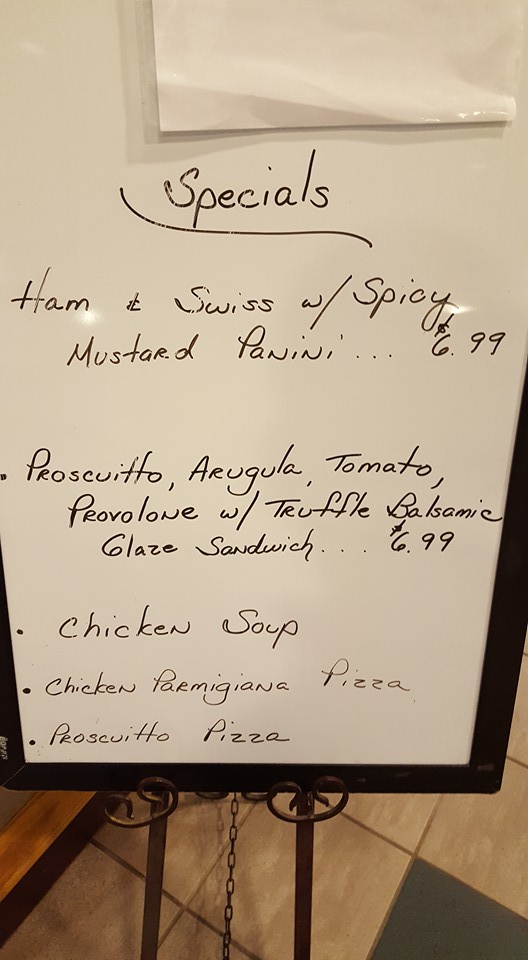 Specials
Ham & Swiss w/ Spicy
Mustard Panini... $6.99
. Proscuitto, Arugula, Tomato,
Provolone w/ Truffle Balsamic
Glaze Sandwich... $6.99
. Chicken Soup
. Chicken Parmigiana Pizza
. Proscuitto Pizza